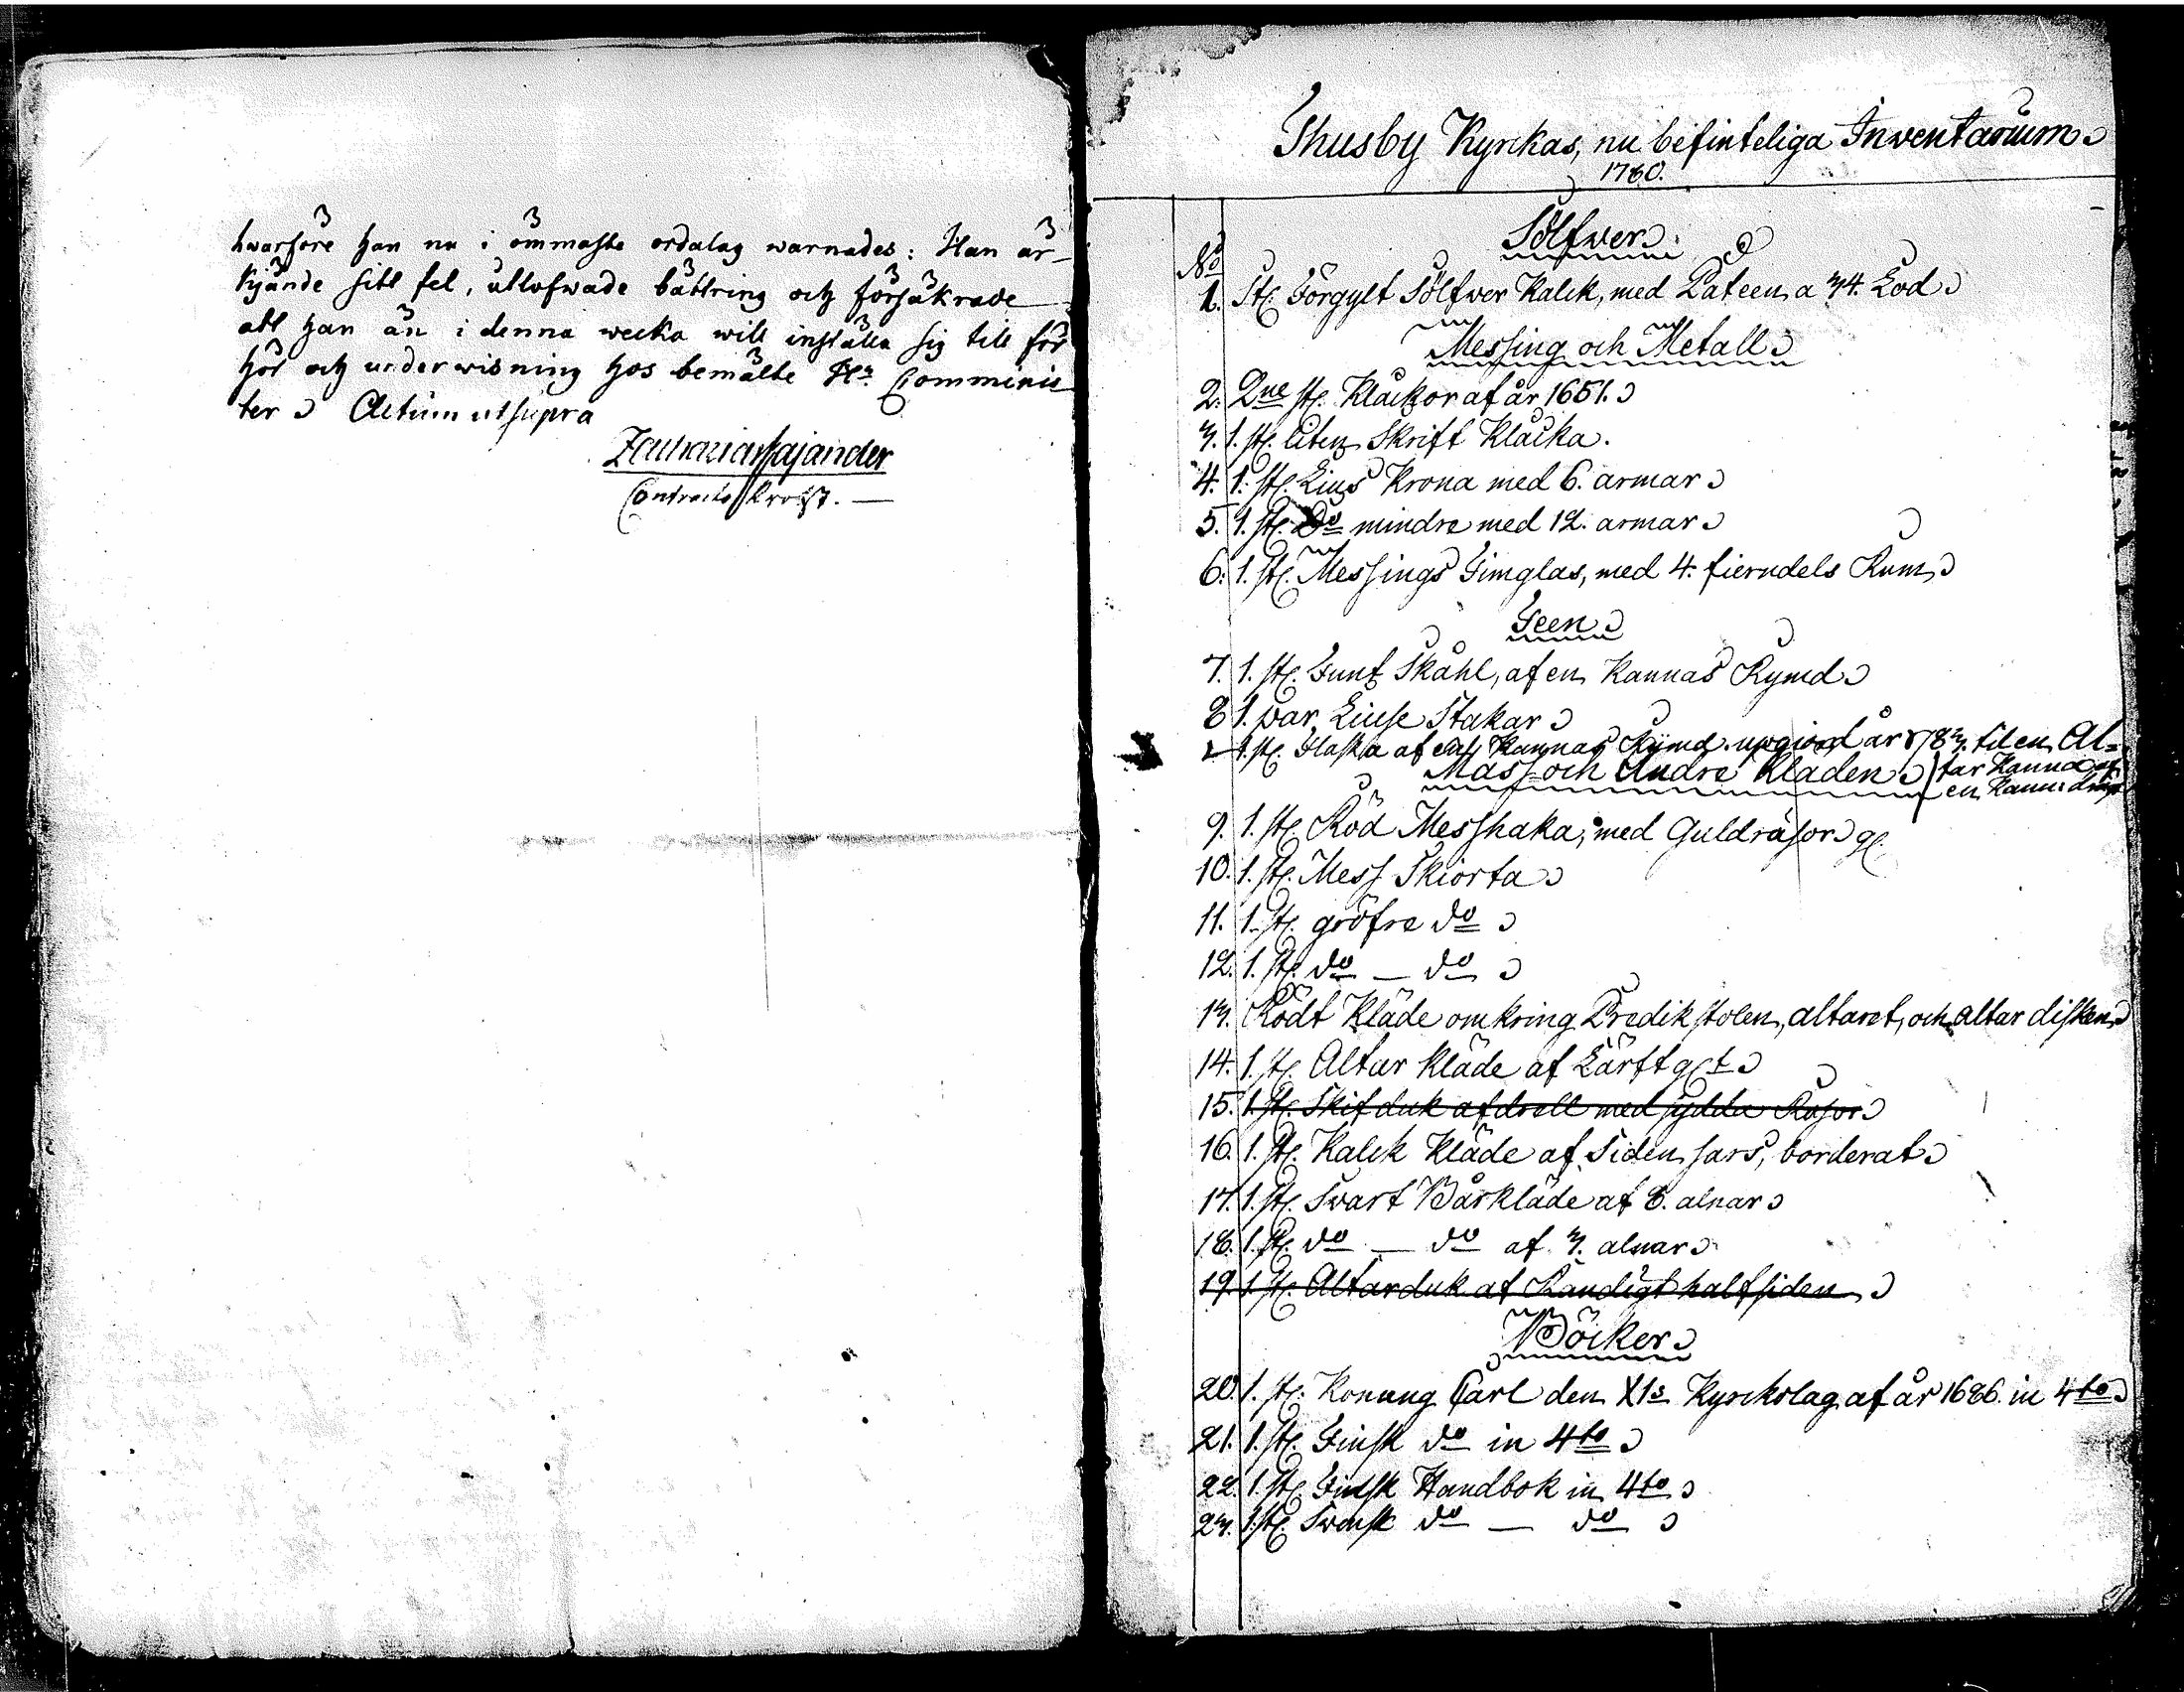 hwarföre han nu i ömmaste ordalag warnades: Han är-
kjände sitt fel, utlofwade bättring och försäkrade
att han än i denna wecka will inställa sig till för
hör och underwisning hos bemälte Hr Comminis
ter Actum ut supra
Zacharias Cajander
Contracts Prost.
Thusby Kyrckas, nu befinteliga Inventarium
1780.
Sölfwer
No
1. St. Förgylt Sölfwer Kalck, med Pateen a 34. Lod
Messing och Metall
2. 2ne st. Klåckor af år 1651.
3. 1. st. liten Skrift Klåcka.
4. 1. st. Lius Krona med 6. armar
5. 1. st. Do mindre med 12. armar
6. 1. st. Messings Timglas, med 4. fierndels Rum
Teen
7. 1. st. Funt Skåhl, af en Kannas Rymd
8 1. par Liuse Stakar
1. st. Flaska af en Kannas Rymd. upgiord år 1783. til en Al=
tar Kanna af
en Kannas drygt
Mass och Andre Kläden
9. 1. st. Röd Messhaka, med Guldråsor
10. 1. st. Mess Skiorta
11. 1. st. gröfre do
12. 1. st. do — do
13. Rödt Kläde omkring Predikstolen, altaret, och altar disken
14. 1. st. Altar Kläde af Lärft
15. 1. st. Skif duk af drell med sydda Rosor
16. 1. st. Kalck Kläde af Siden sars, borderat
17. 1. st. Swart Bårkläde af 8. alnar
18. 1. st. do — do af 3. alnar
19. 1. st. Altarduk af Randigt halfsiden
Böcker
20. 1. st. Konung Carl den XIs Kyrckolag af år 1686. in 4to
21. 1. st. Finsk do in 4to
22. 1. st. Finsk Handbok in 4to
23. 1. st. Swensk do — do